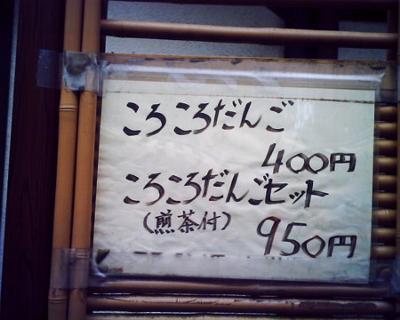 ころころだんご
400円
ころころだんごセット
(煎茶付)
950円